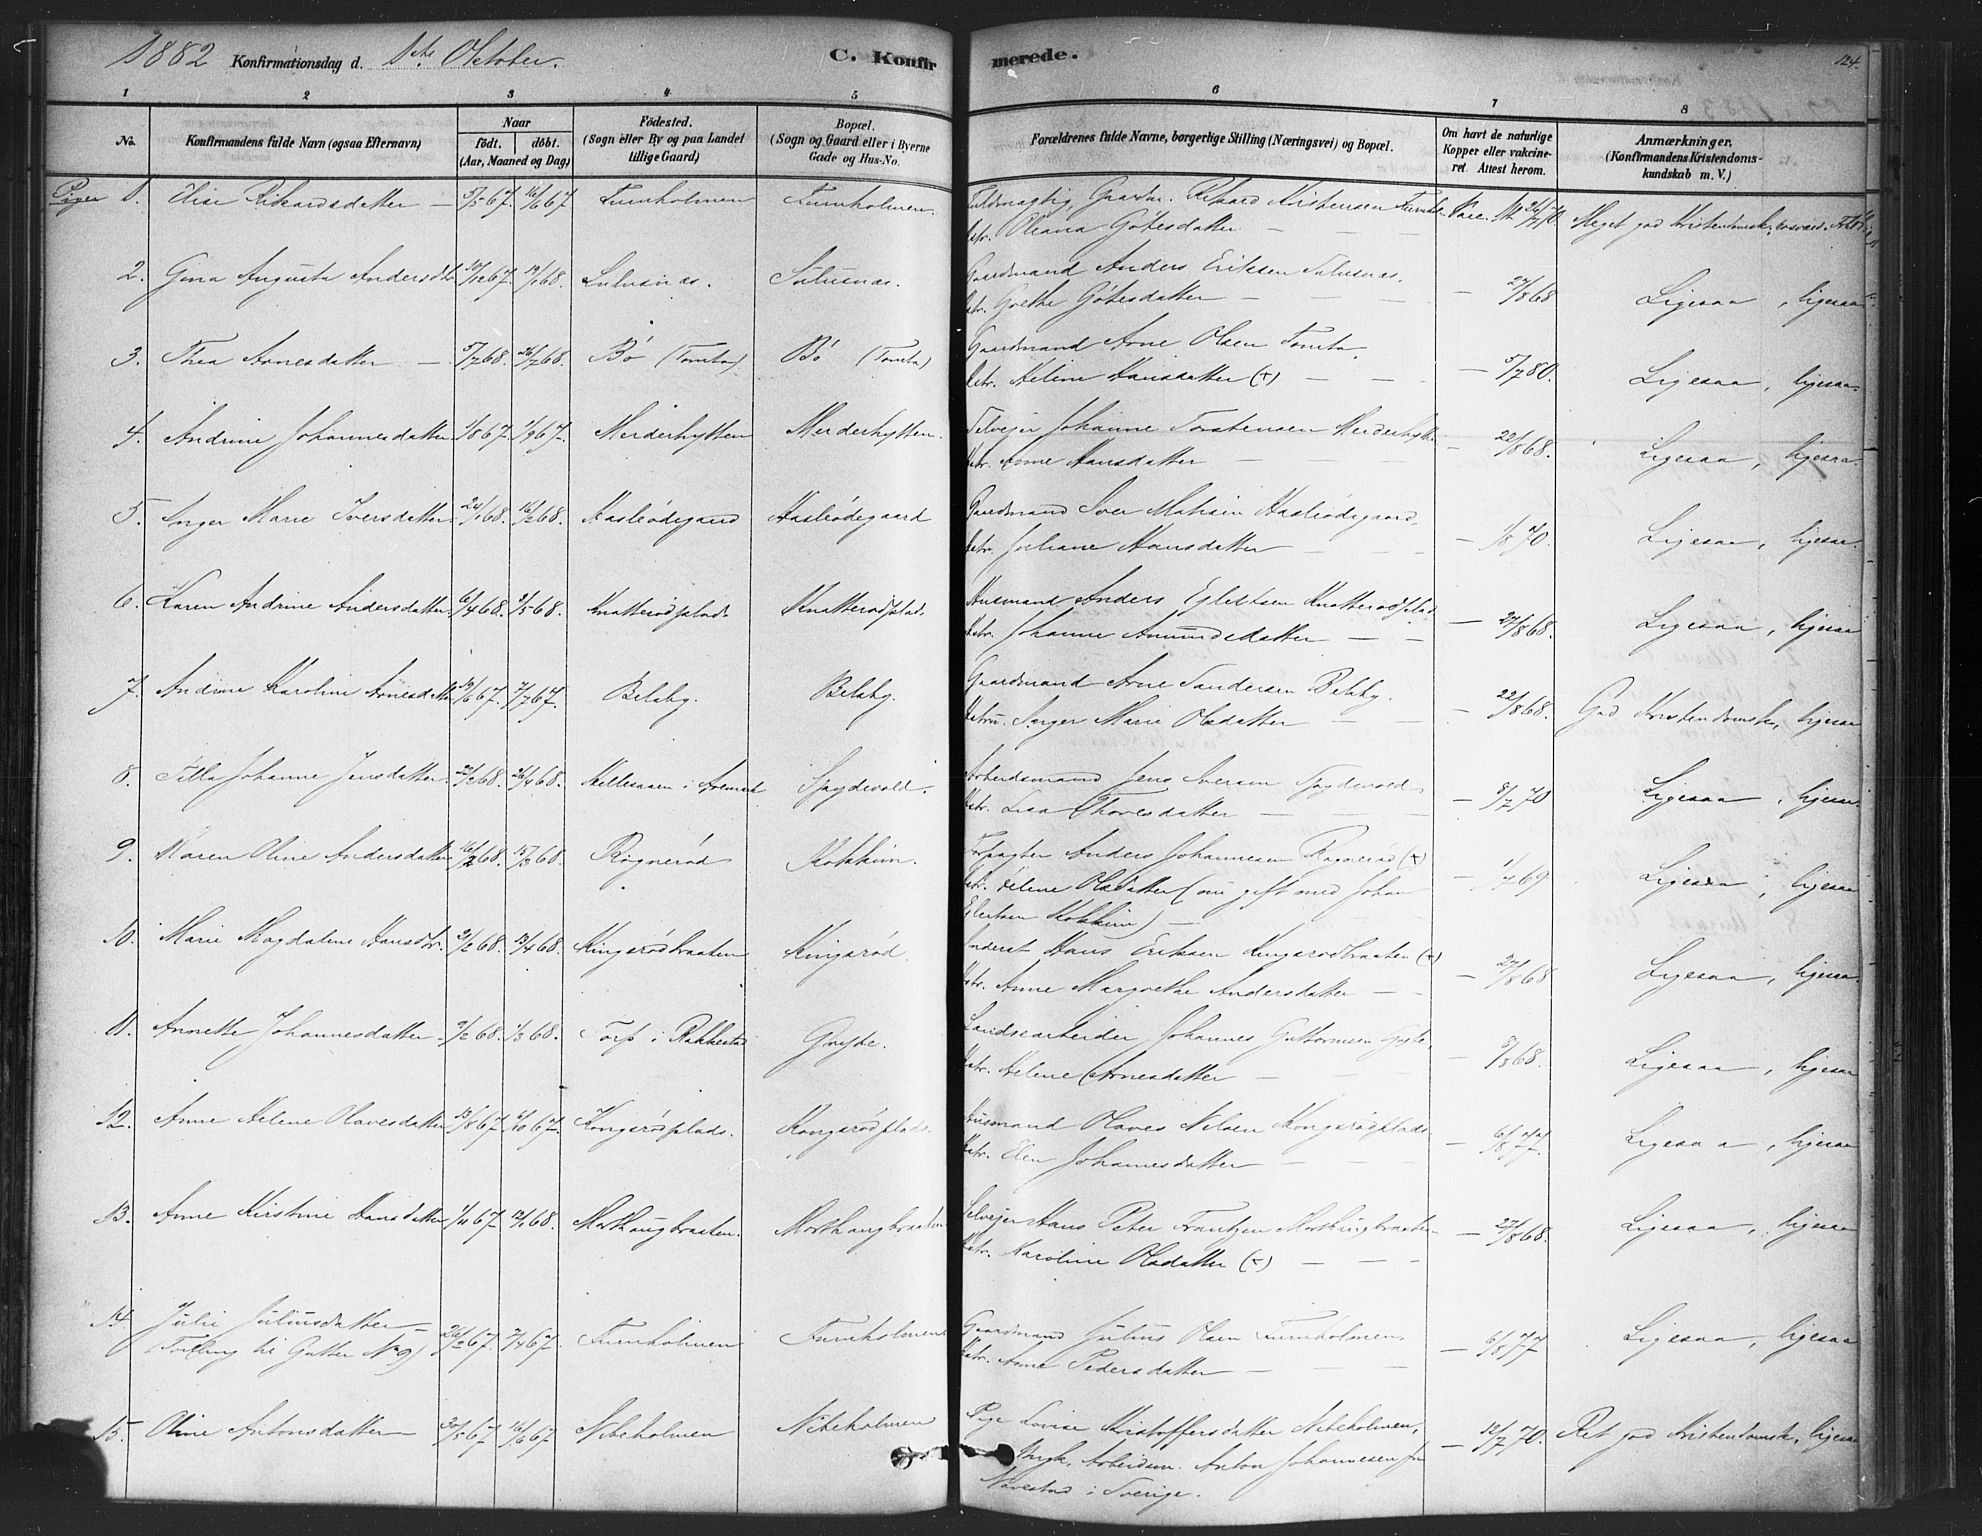 1882 Konfirmationsdag d. 1ste October.
C. Konfirmerede.
124.
1 2 3 4 5 6 7 8
No.
Konfirmandens fulde Navn (ogsaa Efternavn)
Naar
født. døbt.
(Aar, Maaned og Dag)
Födested.
(Sogn eller By og paa Landet
tillige Gaard)
Bopæl.
(Sogn og Gaard eller i Byerne
Gade og Hus-No.
Forældrenes fulde Navne, borgerlige Stilling (Næringsvei) og Bopæl.
Om havt de naturlige
Kopper eller vakcine-
ret. Attest herom.
Anmærkninger.
(Konfirmandens Kristendoms-
kundskab m. V.)
Piger 1. Elise Rikardsdatter 5/5 67. 16/6 67 Furuholmen Furuholmen. Gaardm. Rikard Kristensen
Hstr. Oleana Götesdatter Vacc. Meget god Kristendomsk.
2. Gina Augusta Andersdtr. 10/12 67. 19/1 68. Sulusnæs. Sulusnæs. Gaardmand Anders Eriksen Sulusnæs.
Hstr. Grethe Götesdatter — 27/8 68 Ligesaa, ligesaa
3. Thea Arnesdatter 5/7 68. 26/7 68. Bö (Tomta) Bö (Tomta) Gaardmand Arne Olsen Tomta.
Hstr. Helene Hansdatter (+) — 5/7 80. Ligesaa, ligesaa
4. Andrine Johannesdatter 1/8 67. 1/9 67. Merderhytten Merderhytten. Selveier Johanne Torstensen
Hstr. Anne Hansdatter — 22/8 68. Ligesaa, ligesaa
5. Inger Marie Iversdatter 24/1 68. 16/2 68. Hasleödegaard Hasleödegaard Gaardmand Iver Mathisen Hasleödegaard,
Hstr. Juliane Hansdatter — 1/8 70. Ligesaa, ligesaa
6. Karen Andrine Andersdatter 6/4 68. 3/5 68. Knatterödplads Knatterödplads Husmand Anders Eglertsen Knatterödplads
Hstr. Johanne Amundsdatter — 27/8 68. Ligesaa, ligesaa
7. Andrine Karoline Arnesdatter 19/6 67. 7/7 67. Belsby. Belsby. Gaardmand Arne Sandersen Belsby.
Hstru. Inger Marie Olsdatter — 22/8 68. God Kristendomsk., ligesaa
8. Johanne Jensdatter 22/2 68. 26/4 68. i Aremark Spydevold. Arbeidsmand Jens Iversen Spydevold
Hstr. Lisa Thoresdatter — 8/7 70 Ligesaa, ligesaa
9. Maren Oline Andersdatter 16/2 68. 15/3 68. Rögneröd Kokkim. Forpagter Anders Johannesen Rögneröd (+)
Hstr. Helene Olsdatter (nu gift med Johan
Eglertsen Kokkim) — 1/7 69 Ligesaa, ligesaa
10. Marie Magdalene Hansdtr. 2/2 68. 13/4 68. Kingsrödbraaten Kingsröd. Inderst Hans Eriksen Kingsrödbraaten (+)
Hstr. Anne Margrethe Andersdatter — 27/8 68 Ligesaa, ligesaa
11. Annette Johannesdatter 9/2 68. 1/3 68. Torp i Rakkestad Gryde. Johannes Guttormsen Gryde,
Hstr. Helene Arnesdatter Ligesaa, ligesaa
12. Anne Helene Olavesdatter 13/8 67. 6/10 67. Kongsrödplads. Kongsrödplads. Husmand Olaves Nilsen Kongsrödplads
Hstr. Elen Johannesdatter — 6/8 77. Ligesaa, ligesaa
13. Anne Kirstine Hansdatter 1/11 67. 12/1 68. Morthaugbraaten. Morthaugbraaten Selveier Hans Peter Frantzen Morthaugbraaten
Hstr. Karoline Olsdatter (+) — 27/8 68. Ligesaa, ligesaa
14. Julie Juliusdatter
Tvilling til Gutter No 9) 26/2 67. 7/4 67. Furuholmen Furuholmen Gaardmand Julius Olsen Furuholmen.
Hstr. Anne Pedersdatter — 6/8 77 Ligesaa, ligesaa
15. Oline Antonsdatter 30/5 67 16/6 67 Nibeholmen Nibeholmen Pige Lovise Kristoffersdatter Nibeholmen,
Ungk. Arbeidsm. Anton Johannesen fra
i Sverige. — 12/7 70. Ret god Kristendomsk., ligesaa